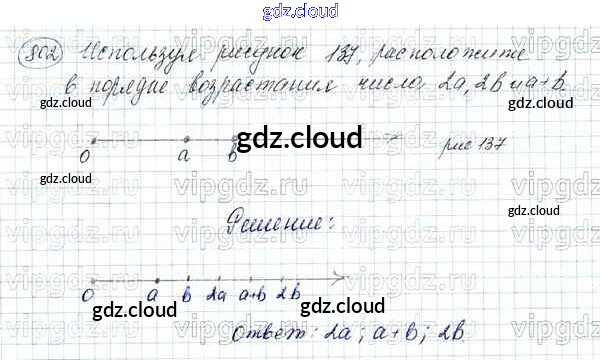 gdz.cloud
802 Используя рисунок 137, расположите
в порядке возрастания числа 2a, 2b и a+b.
gdz.cloud
gdz.cloud
gdz.cloud
0 a b рис 137
gdz.cloud
vipgdz.ru vipgdz.ru vipgdz.ru
gdz.cloud
Решение:
0 a b 2a a+b 2b
gdz.cloud
gdz.cloud
gdz.cloud
Ответ: 2a; a+b; 2b